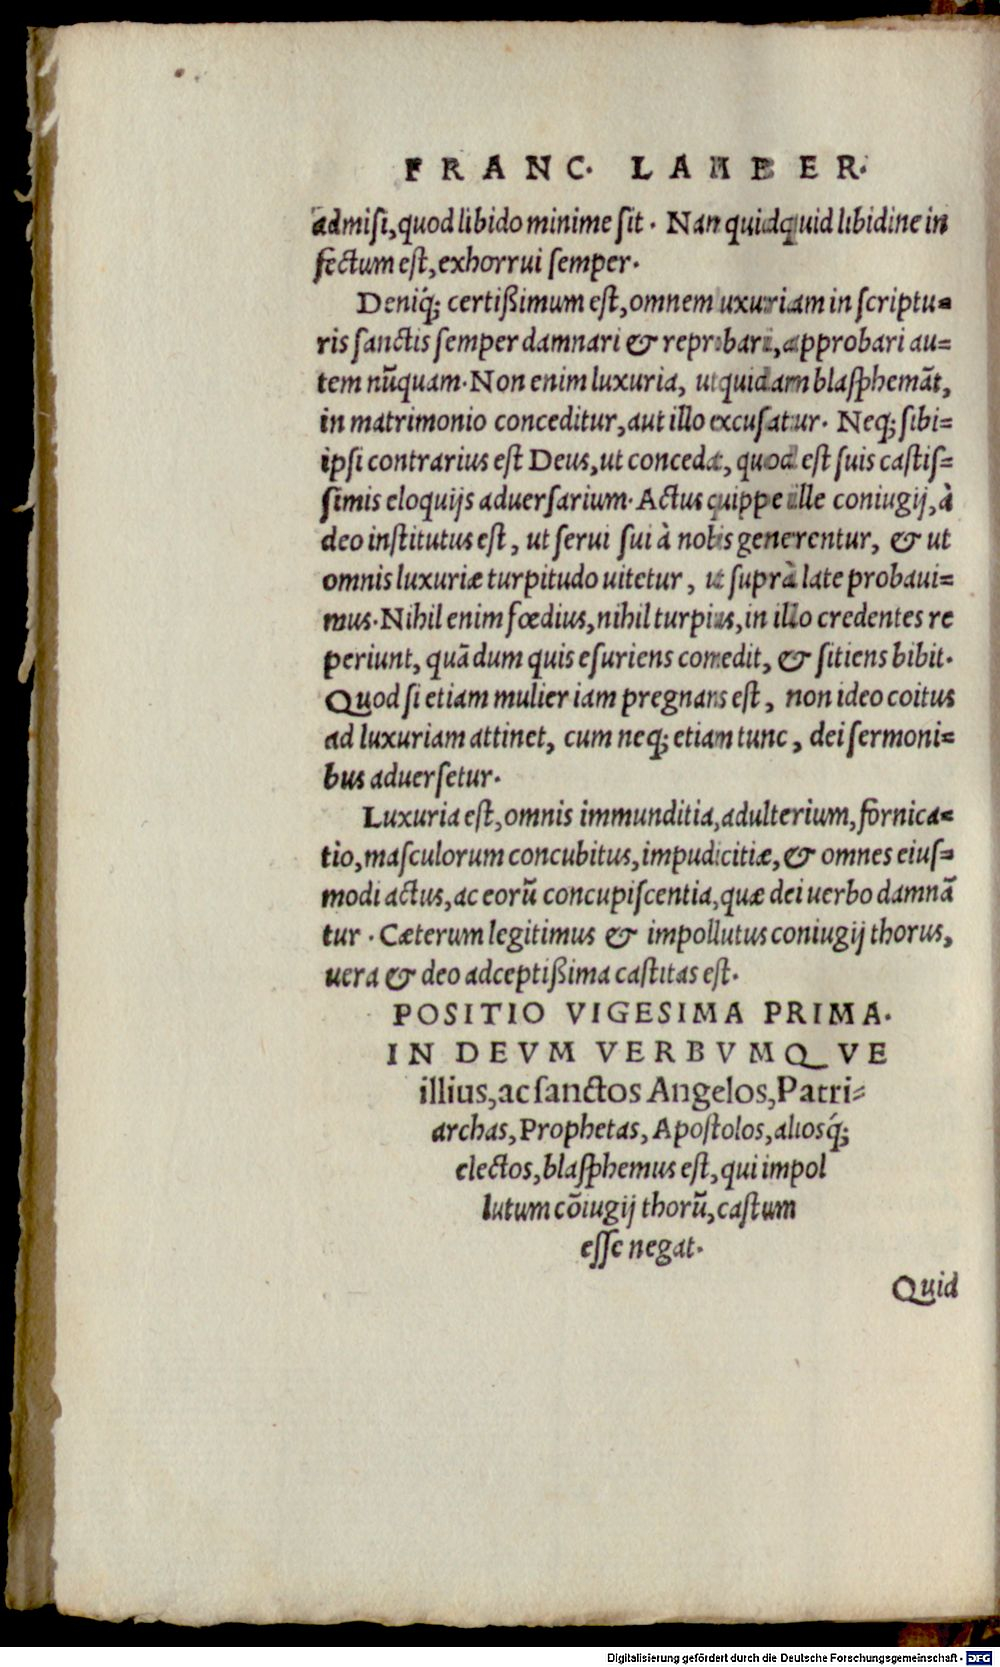 FRANC. LAMBER.
admisi, quod libido minime sit. Nam quidquid libidine in
fectum est, exhorrui semper.
Deniq́; certißimum est, omnem luxuriam in scriptu=
ris sanctis semper damnari & reprobari, approbari au=
tem nũquam. Non enim luxuria, ut quidam blasphemãt,
in matrimonio conceditur, aut illo excusatur. Neq; sibi=
ipsi contrarius est Deus, ut concedat, quod est suis castis=
simis eloquijs aduersarium. Actus quippe ille coniugij, à
deo institutus est, ut serui sui à nobis generentur, & ut
omnis luxuriæ turpitudo uitetur, ut suprà late probaui=
mus. Nihil enim fœdius, nihil turpius, in illo credentes re
periunt, quã dum quis esuriens comedit, & sitiens bibit.
Quod si etiam mulier iam pregnans est, non ideo coitus
ad luxuriam attinet, cum neq; etiam tunc, dei sermoni=
bus aduersetur.
Luxuria est, omnis immunditia, adulterium, fornica=
tio, masculorum concubitus, impudicitiæ, & omnes eius=
modi actus, ac eorũ concupiscentia, quæ dei uerbo damnã
tur. Cæterum legitimus & impollutus coniugij thorus,
uera & deo adceptißima castitas est.
POSITIO VIGESIMA PRIMA.
IN DEVM VERBVMQVE
illius, ac sanctos Angelos, Patri=
archas, Prophetas, Apostolos, aliosq́;
electos, blasphemus est, qui impol
lutum cõiugij thorũ, castum
esse negat.
Quid
Digitalisierung gefördert durch die Deutsche Forschungsgemeinschaft - DFG